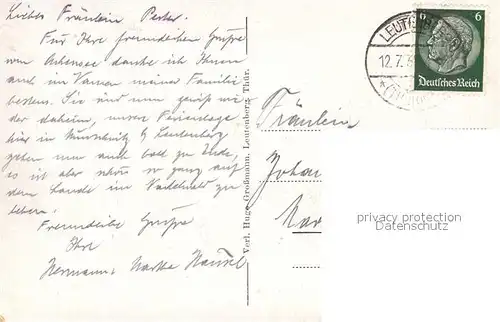 Liebes Fräulein
Für Ihre freundlichen Grüße
vom Achensee danke ich Ihnen
auch im Namen meiner Familie
bestens. Sie sind nun gewiß
der daheim, unsere Ferientage
hier in b/ Leutenberg
gehen nun auch bald zu Ende,
es ist aber schön so ganz auf
dem Lande im zu
leben.
Freundliche Grüße
Ihre
Hermann
Verl. Hugo Großmann, Leutenberg Thür.
LEUT
12.7.3
6 6
Deutsches Reich
Fräulein
Joha
privacy protection
Datenschutz